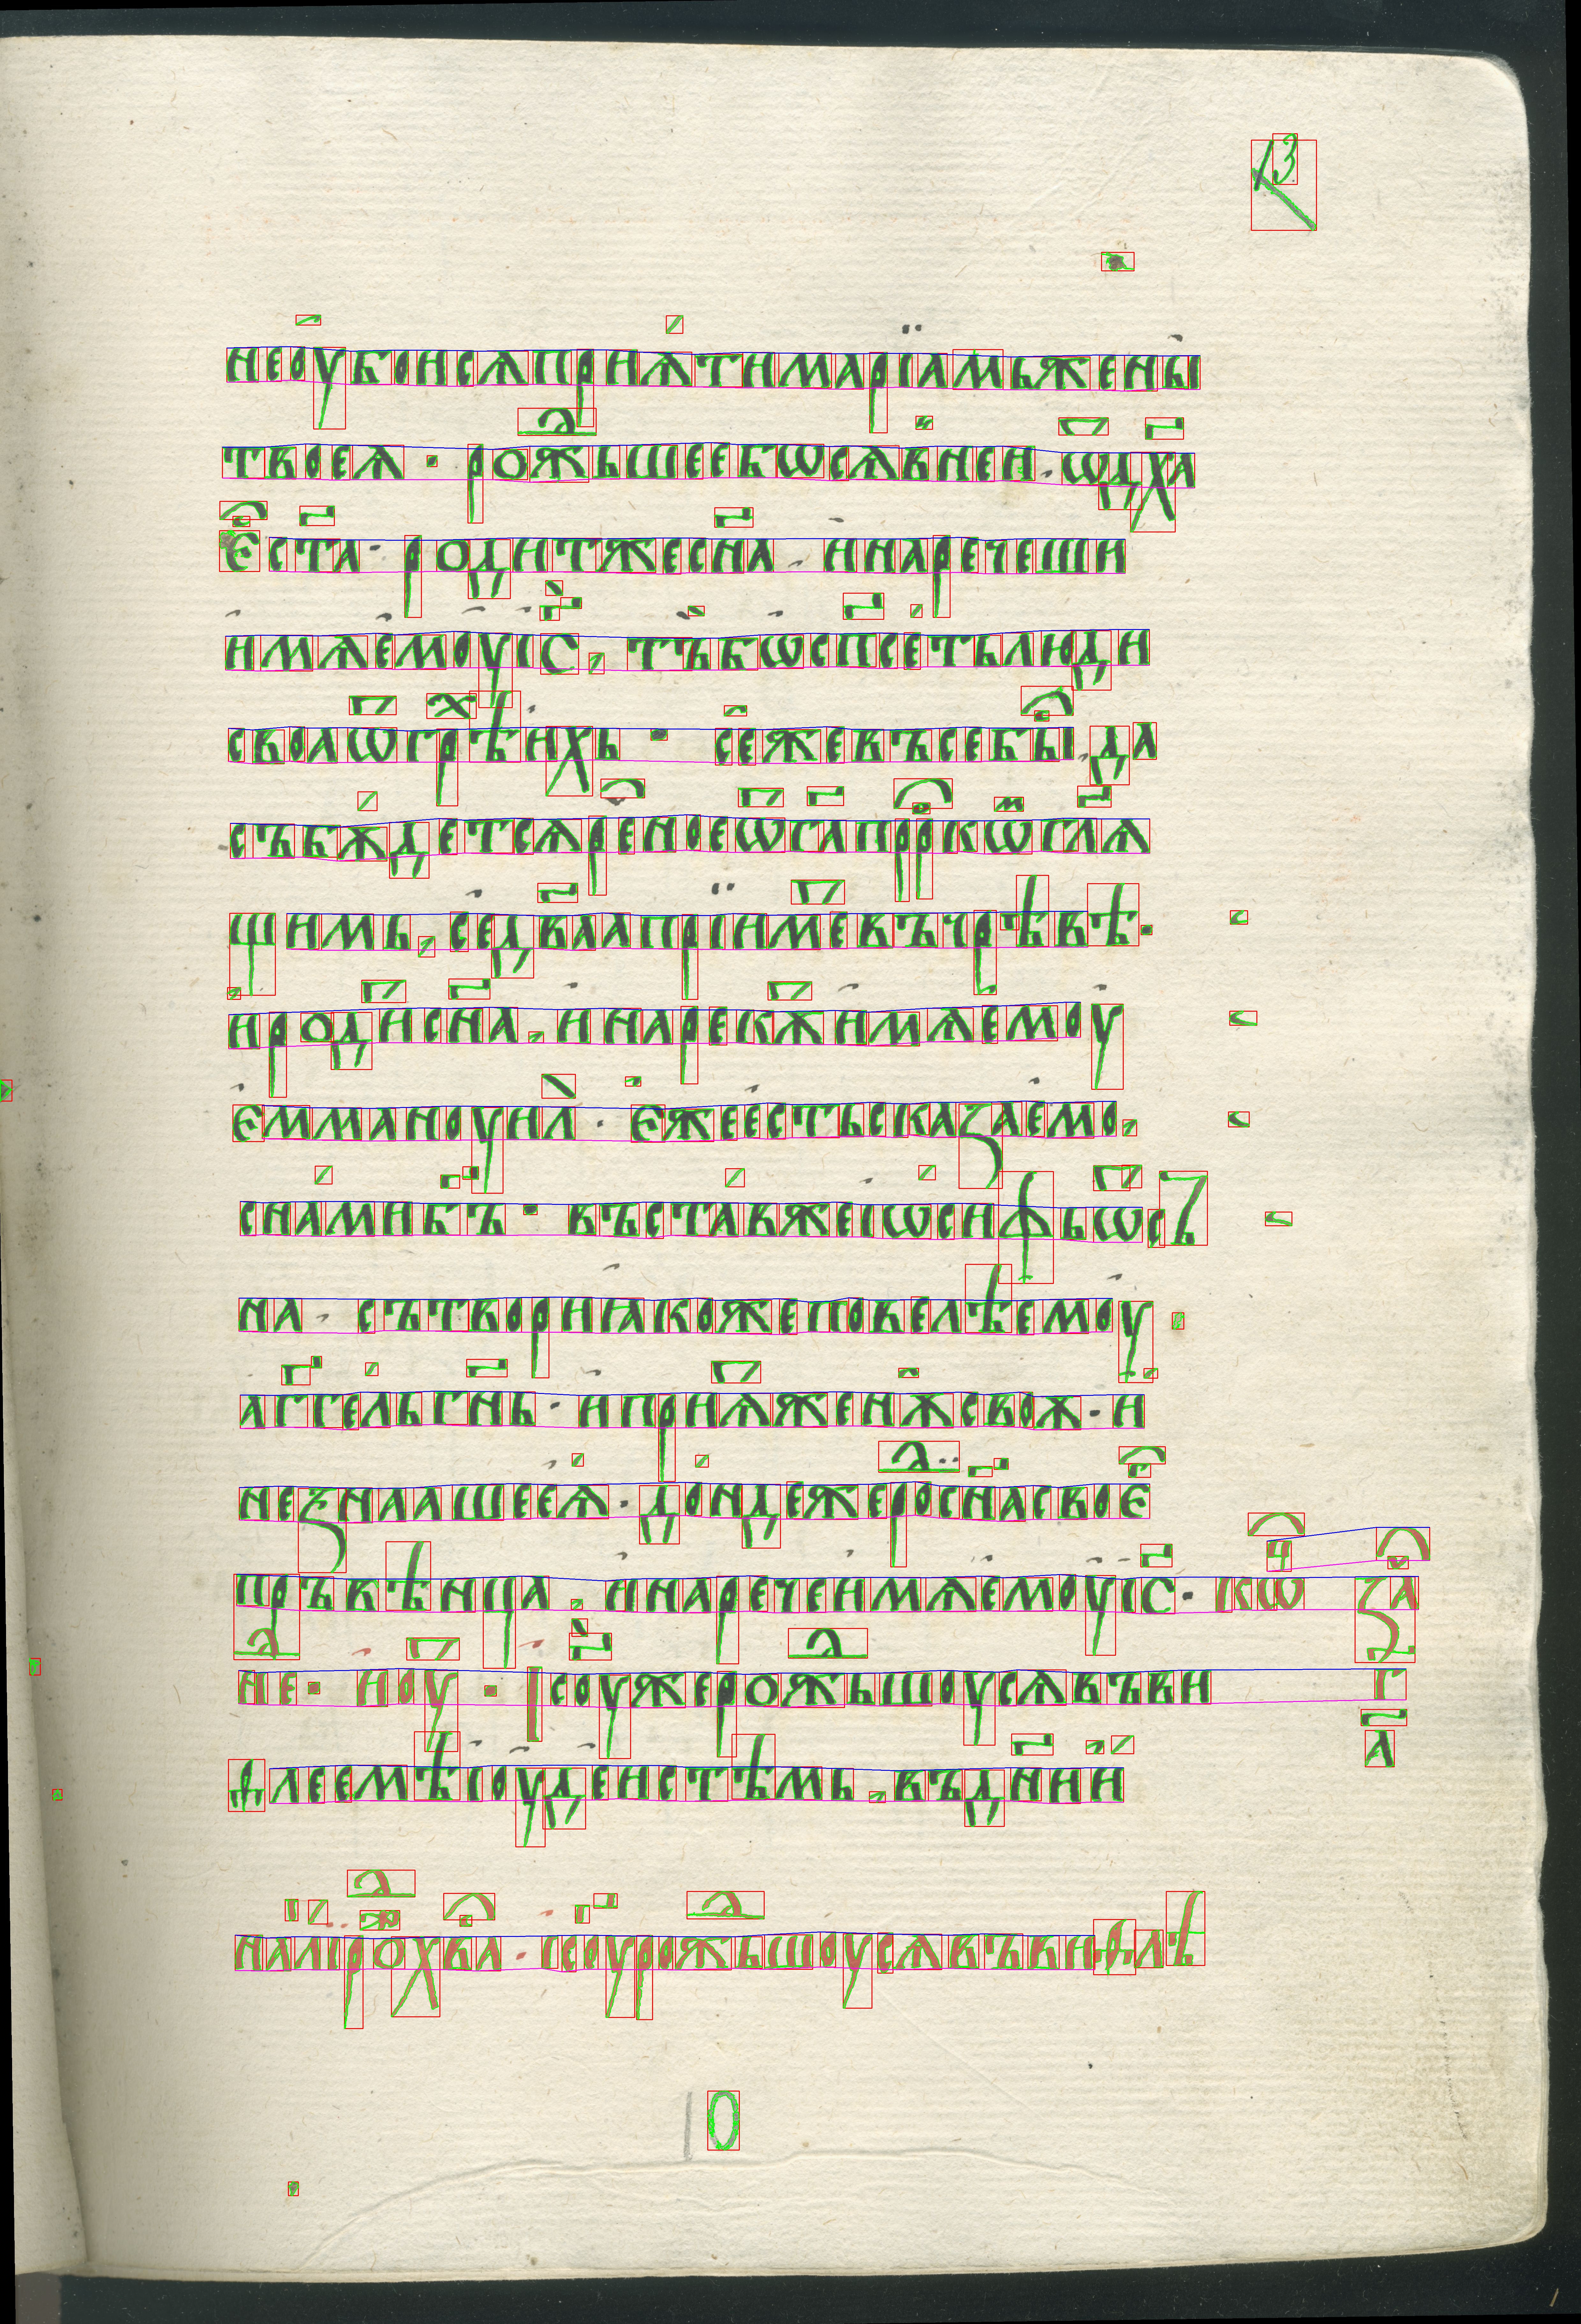 13
не оубоисѧ прнѧти марїамь жены
твоеѧ · рожьшеебѡсѧвнеи · ѿдх҃а
єст҃а · родитжес҃на · инаречеши
имѧемоуіс҃, тъбѡспсетьлюди
своаѿгрѣихь · сежевъсебы͡, да
събѫдетсѧреноеѿг҃апрр͡ко҃мгл҃ѧ
щимь, сед҃ваапрїиметвъчрѣвѣ·
иродис҃на, инарекѫтимѧемоу
еммануил · єжеестьсказаемо,
снамиб҃ъ · въставжеіѡсифьѿсъ
на · сътвориꙗкожеповелѣемоу
аггельг҃нь · ипрнѧженѫсвоѫ · и
незнаашееѧ · дондежеродс҃насвоє
пръвѣнца, инаречеимѧемоуіс҃ · кѡ҃ч за
не · ноу · Ісоужерожьшоусѧвъви г
ѳлеемѣіоудеистѣмь, въдн҃ии а҃
налірохва · ісоурожьшоусѧвъвиѳлѣ
10